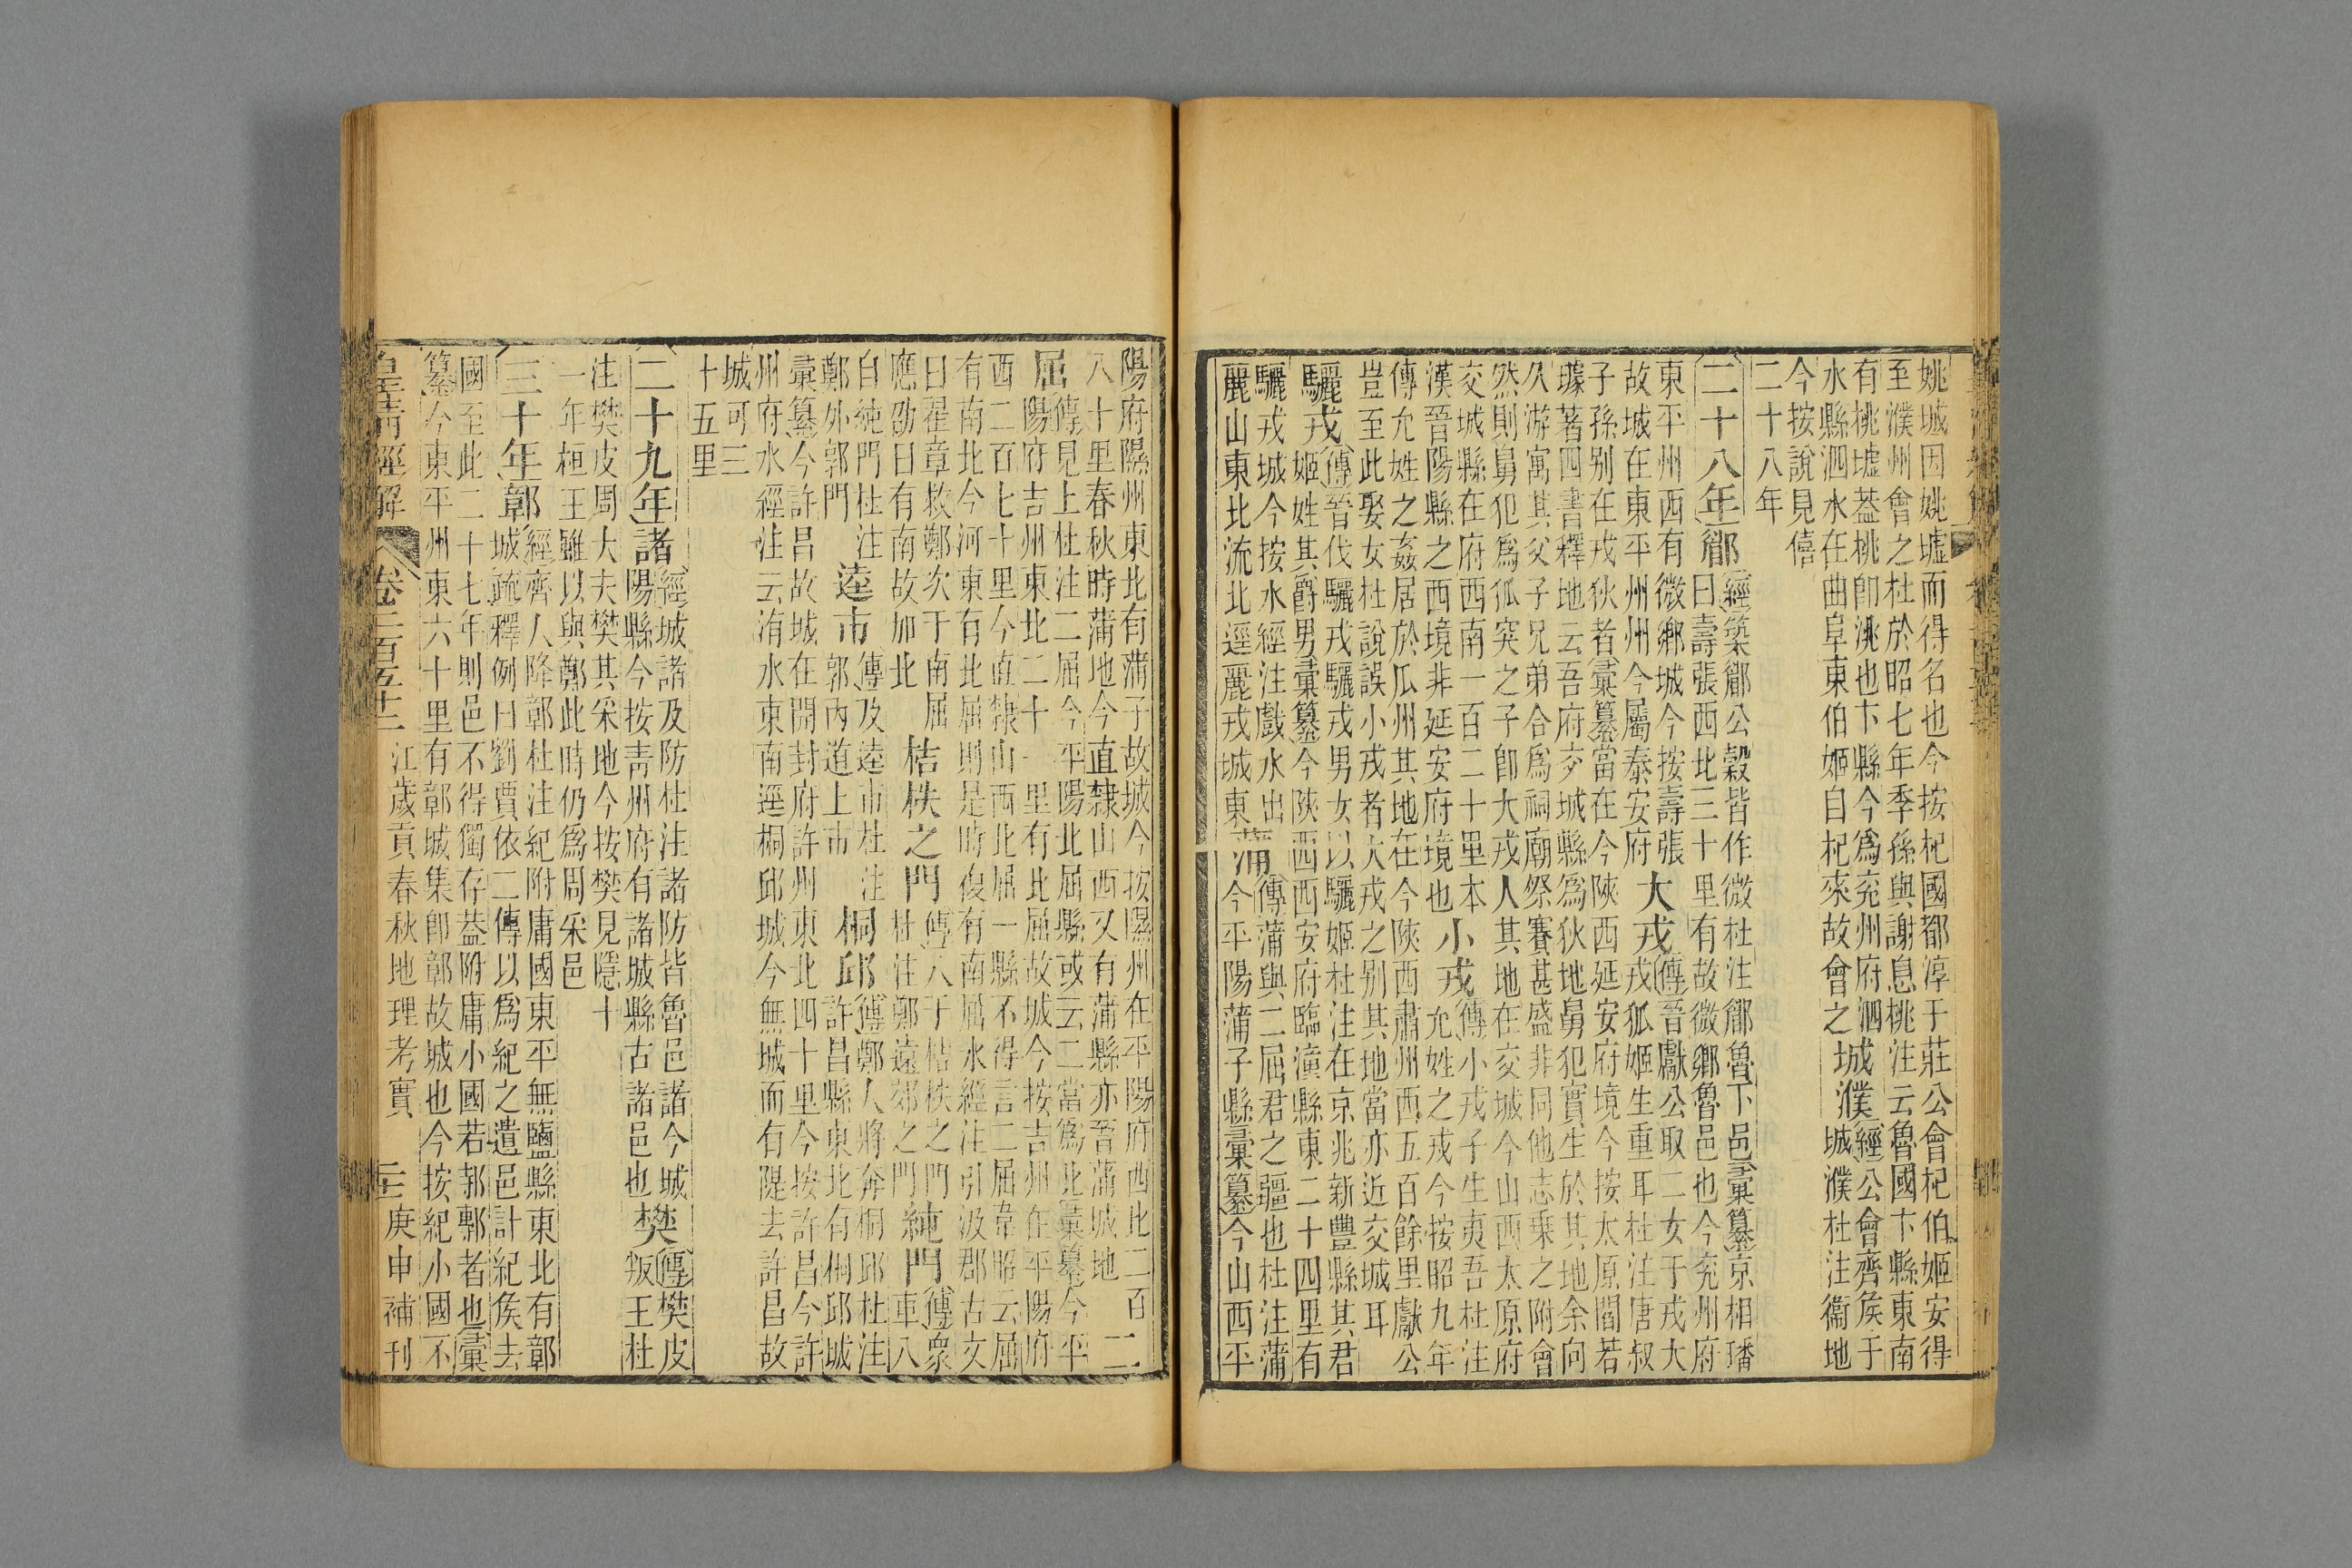 姚城因姚墟而得名也今按杞國都淳于莊公會杞伯姬安得
至濮州會之杜於昭七年季孫與謝息桃注云魯國卞縣東南
有桃墟葢桃卽洮也卞縣今爲兗州府泗
水縣泗水在曲阜東伯姬自杞來故會之
城濮
經公會齊侯于
城濮杜注衞地
今按說見僖
二十八年
二十八年
郿
經築郿公穀皆作微杜注郿魯下邑彙纂京相璠
曰壽張西北三十里有故微鄉魯邑也今兗州府
東平州西有微鄉城今按壽張
故城在東平州州今屬泰安府
大戎
傳晉獻公取二女于戎大
戎狐姬生重耳杜注唐叔
子孫别在戎狄者彙纂當在今陝西延安府境今按太原閻若
璩著四書釋地云吾府交城縣爲狄地舅犯實生於其地余向
久游寓其父子兄弟合爲祠廟祭賽甚盛非同他志乘之附會
然則舅犯爲狐突之子卽大戎人其地在交城今山西太原府
交城縣在府西南一百二十里本
漢晉陽縣之西境非延安府境也
小戎
傳小戎子生夷吾杜注
允姓之戎今按昭九年
傳允姓之姦居於瓜州其地在今陝西肅州西五百餘里獻公
豈至此娶女杜說誤小戎者大戎之别其地當亦近交城耳
驪戎
傳晉伐驪戎驪戎男女以驪姬杜注在京兆新豐縣其君
姬姓其爵男彙纂今陝西西安府臨潼縣東二十四里有
驪戎城今按水經注戲水出
麗山東北流北逕麗戎城東
蒲
傳蒲與二屈君之疆也杜注蒲
今平陽蒲子縣彙纂今山西平
陽府隰州東北有蒲子故城今按隰州在平陽府西北二百
八十里春秋時蒲地今直隸山西又有蒲縣亦晉蒲城地
二
屈
傳見上杜注二屈今平陽北屈縣或云二當爲北彙纂今平
陽府吉州東北二十一里有北屈故城今按吉州在平陽府
西二百七十里今直隸山西北屈一縣不得言二屈韋昭云屈
有南北今河東有北屈則是時復有南屈水經注引汲郡古文
曰翟章救鄭次于南屈
應劭曰有南故加北
桔柣之門
傳入于桔柣之門
杜注鄭遠郊之門
純門
傳衆
車入
自純門杜注
鄭外郭門
逵市
傳及逵市杜注
郭內道上市
桐邱
傳鄭人將奔桐邱杜注
許昌縣東北有桐邱城
彙纂今許昌故城在開封府許州東北四十里今按許昌今許
州府水經注云洧水東南逕桐邱城今無城而有隄去許昌故
城可三
十五里
二十九年
諸
經城諸及防杜注諸防皆魯邑諸今城
陽縣今按靑州府有諸城縣古諸邑也
樊
傳樊皮
叛王杜
注樊皮周大夫樊其采地今按樊見隱十
一年桓王雖以與鄭此時仍爲周采邑
三十年
鄣
經齊人降鄣杜注紀附庸國東平無鹽縣東北有鄣
城疏釋例曰劉賈依二傳以爲紀之遺邑計紀侯去
國至此二十七年則邑不得獨存葢附庸小國若邿鄟者也彙
纂今東平州東六十里有鄣城集卽鄣故城也今按紀小國不
皇淸經解
卷二百五十二
江歲貢春秋地理考實
庚申補刊